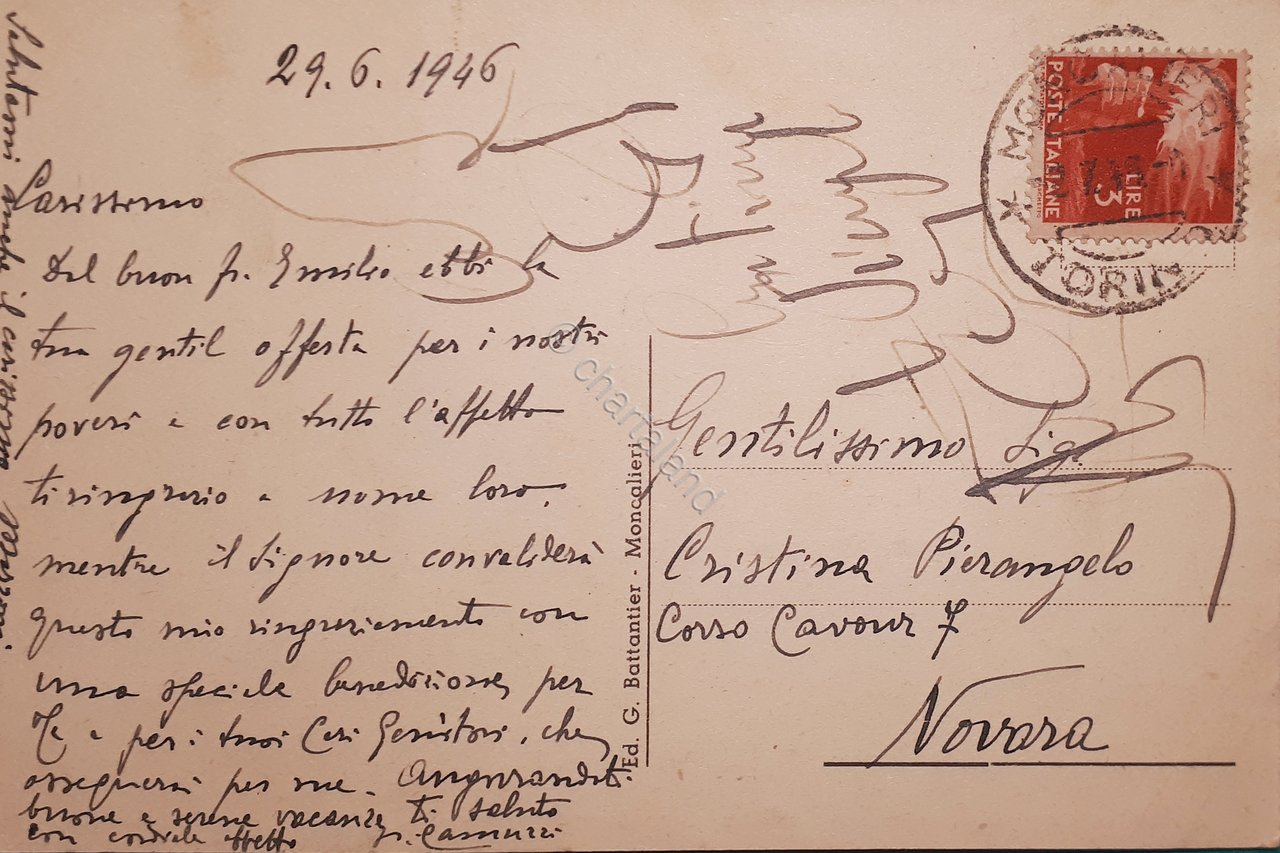 29.6.1946
Carissimo
Dal buon fr. Emilio ebbi la
tua gentil offerta per i nostri
poveri e con tutto l'affetto
ti ringrazio a nome loro,
mentre il Signore convaliderà
questo mio ringraziamento con
una speciale benedizione, per
Te e per i tuoi Cari Genitori, che
ossequierai per me. Augurandoti
buone e serene vacanze ti saluto
con cordiale affetto
Salutami anche il carissimo
Ed. G. Battantier - Moncalieri
POSTE ITALIANE
LIRE
3
MONCALIERI
TORINO
Gentilissimo Sig.
Cristina Pierangelo
Corso Cavour 7
Novara
© chartaland